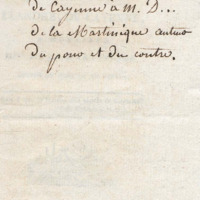 de Cayenne à M. D...
de la Martinique auteur
du pour et du contre.